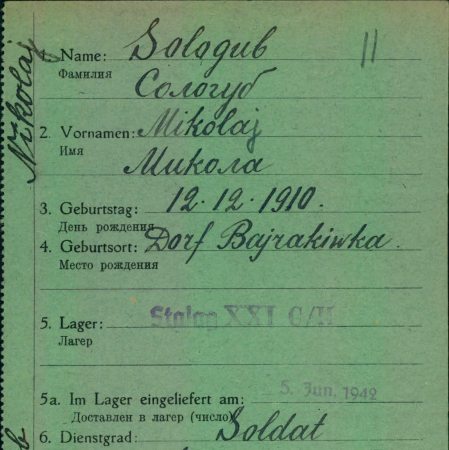 Nikolaj
1. Name: Sologub
Фамилия
Сологуб
2. Vornamen: Mikolaj
Имя
Микола
3. Geburtstag: 12.12.1910.
День рождения
4. Geburtsort: Dorf Bajrakiwka.
Место рождения
5. Lager: Stalag XXI C/H
Лагер
5a. Im Lager eingeliefert am: 5. Jun. 1942
Доставлен в лагер (число)
6. Dienstgrad: Soldat